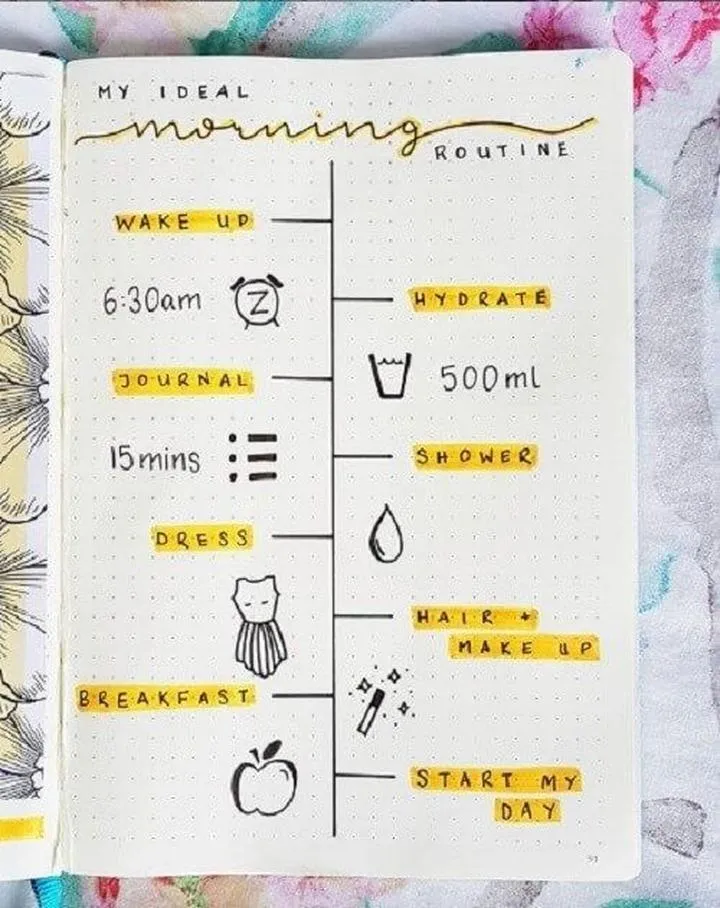 MY IDEAL
morning
ROUTINE
WAKE UP
6:30am
Z
HYDRATE
500ml
JOURNAL
15mins
SHOWER
DRESS
HAIR +
MAKE UP
BREAKFAST
START MY
DAY